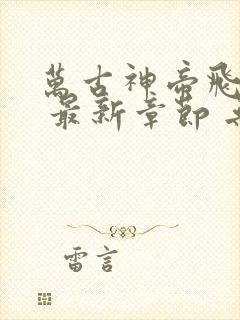 萬古神帝飛
最新章節
雷言